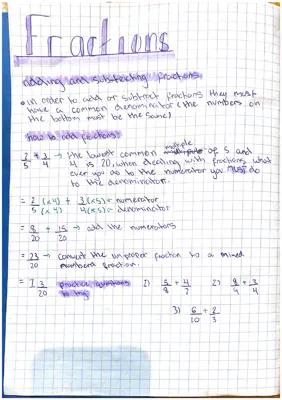 Fractions
adding and subtracting fractions
• in order to add or subtract fractions they must
have a common denominator (the numbers on
the bottom must be the same)
how to add fractions:
2/5 + 3/4 → the lowest common multiple of 5 and
4 is 20, when dealing with fractions what
ever you do to the numerator you must do
to the denominator.
= 2 (x4) / 5 (x4) + 3 (x5) = numerator / 4 (x5) = denominator
= 8/20 + 15/20 → add the numerators
= 23/20 → convert the improper fraction to a mixed
numbered fraction.
= 1 3/20 practice questions to try 1) 5/8 + 4/7 2) 8/4 + 3/4
3) 6/10 + 2/3